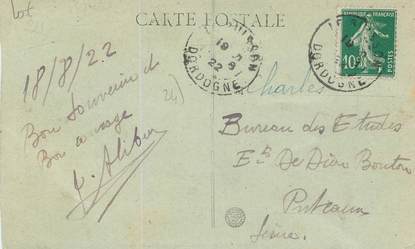 Lot
CARTE POSTALE
18/8/22
Bon souvenir de
Bon courage
24)
DORDOGNE
22
DORDOGNE
10c
POSTES
Charles
Bureau des Etudes
Ets De Dion Bouton
Puteaux
Seine.